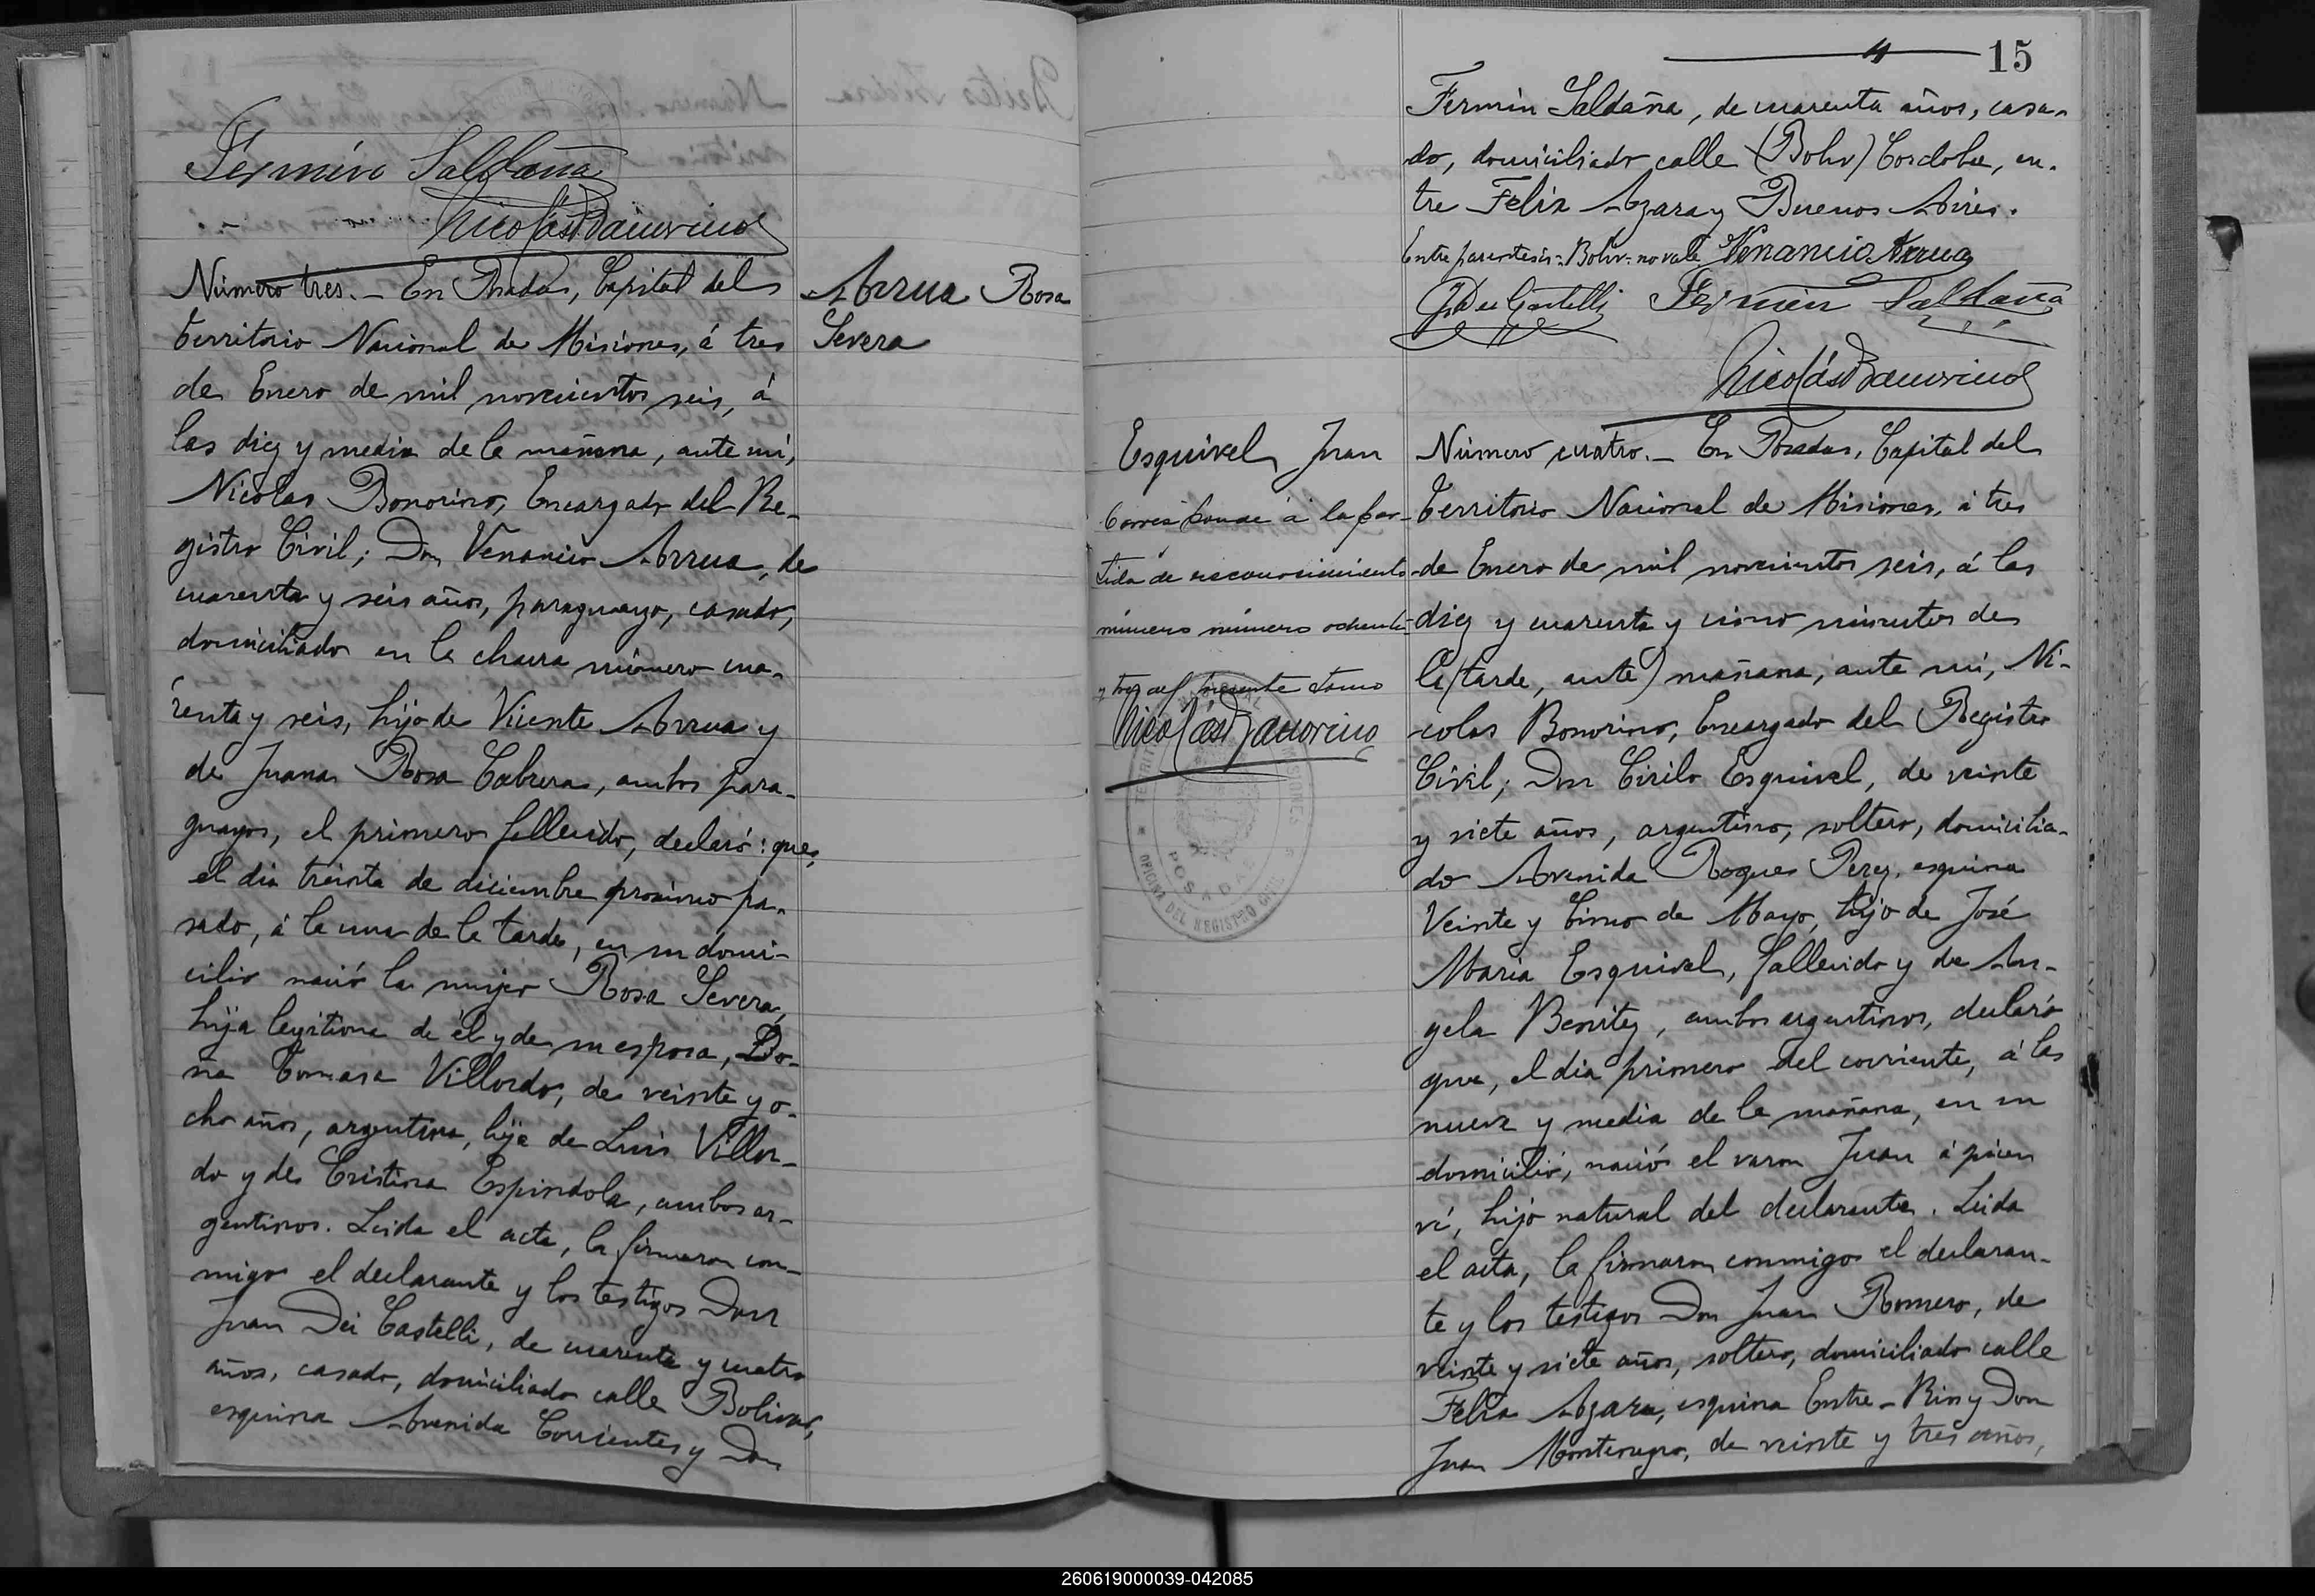 Fermín Saldaña
Nicolás Bonorino
Número tres. — En Posadas, Capital del
Territorio Nacional de Misiones, á tres
de Enero de mil novecientos seis, á
las diez y media de la mañana, ante mí,
Nicolas Bonorino, Encargado del Re-
gistro Civil; Don Venancio Arrua, de
cuarenta y seis años, paraguayo, casado,
domiciliado en la chacra número cua-
renta y seis, hijo de Vicente Arrua y
de Juana Rosa Cabrera, ambos para-
guayos, el primero fallecido, declaró: que,
el dia treinta de diciembre proximo pa-
sado, á la una de la tarde, en su domi-
cilio nació la mujer Rosa Severa,
hija legitima de él y de su esposa, Do-
ña Tomasa Villordo, de veinte y o-
cho años, argentina, hija de Luis Villor-
do y de Cristina Espindola, ambos ar-
gentinos. Leida el acta, la firmaron con-
migo el declarante y los testigos Don
Juan Dei Castelli, de cuarenta y cuatro
años, casado, domiciliado calle Bolivar,
esquina Avenida Corrientes y Don
Arrua Rosa
Severa
15
Fermin Saldaña, de cuarenta años, casa-
do, domiciliado calle (Boliv) Cordoba, en-
tre Felix Azara y Buenos Aires.
Entre parentesis: Boliv: no vale Venancio Arrua
J. Dei Castelli Fermín Saldaña
Nicolás Bonorino
Esquivel Juan
Corresponde á la par-
tida de reconocimiento
número número ochenta
y tres del presente tomo
Nicolás Bonorino
TERRITORIO NACIONAL MISIONES
POSADAS
OFICINA DEL REGISTRO CIVIL
Número cuatro. — En Posadas, Capital del
Territorio Nacional de Misiones, á tres
de Enero de mil novecientos seis, á las
diez y cuarenta y cinco minutos de
la (tarde, ante) mañana, ante mí, Ni-
colas Bonorino, Encargado del Registro
Civil; Don Cirilo Esquivel, de veinte
y siete años, argentino, soltero, domicilia-
do Avenida Roque Perez, esquina
Veinte y Cinco de Mayo, hijo de José
Maria Esquivel, fallecido y de An-
gela Benitez, ambos argentinos, declaró
que, el dia primero del corriente, á las
nueve y media de la mañana, en su
domicilio, nació el varon Juan á quien
ví, hijo natural del declarante. Leida
el acta, la firmaron conmigo el declaran-
te y los testigos Don Juan Romero, de
veinte y siete años, soltero, domiciliado calle
Felix Azara, esquina Entre-Rios y Don
Juan Montenegro, de veinte y tres años,
260619000039-042085